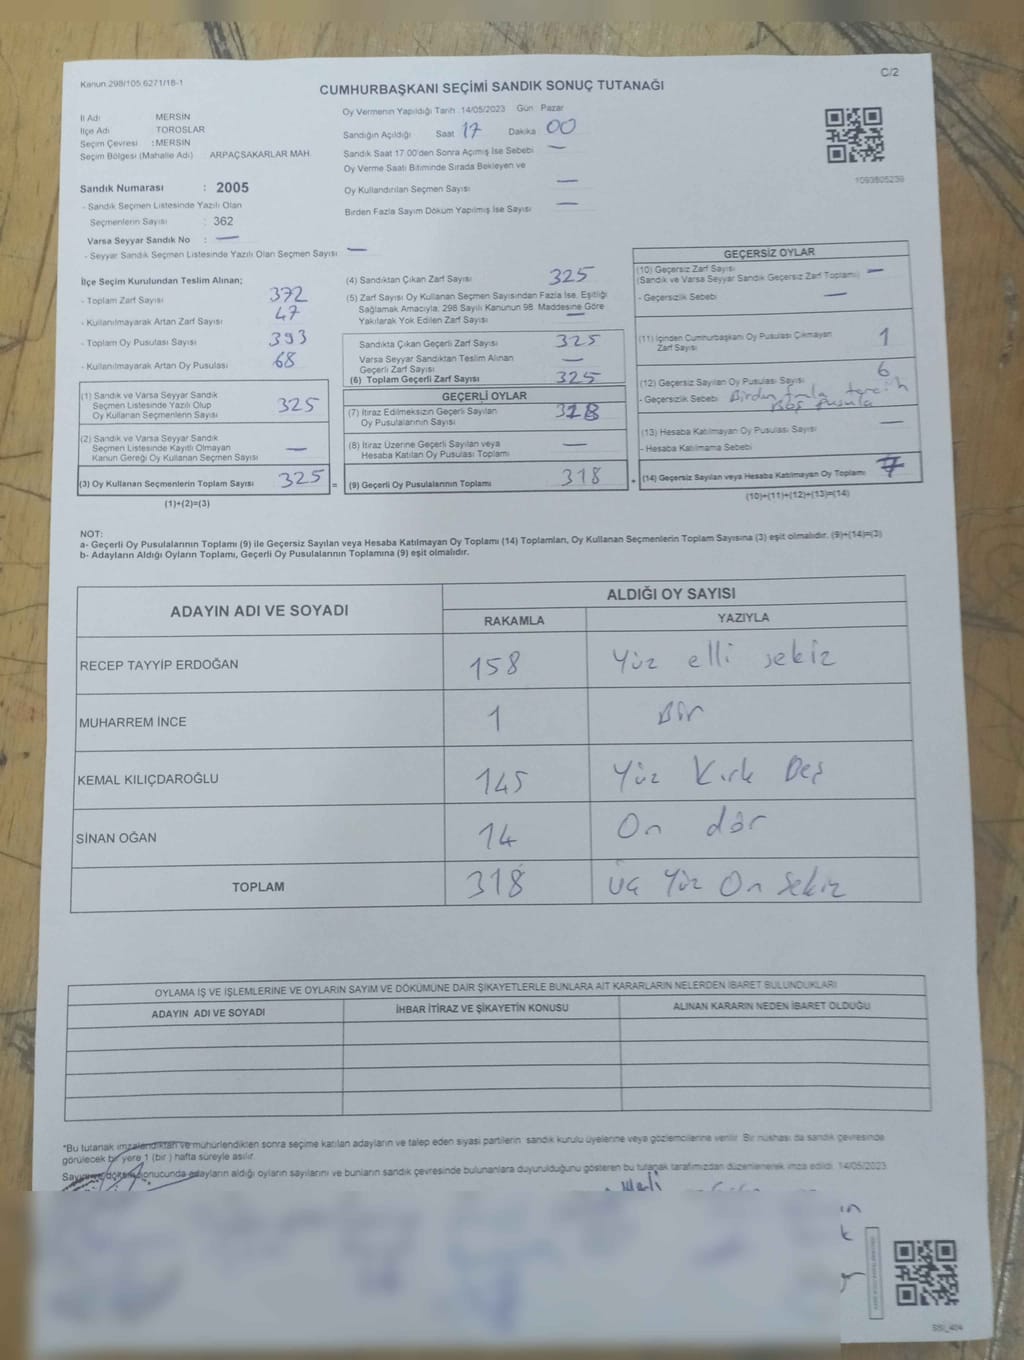 Kanun 298/105,6271/18-1
C/2
CUMHURBAŞKANI SEÇİMİ SANDIK SONUÇ TUTANAĞI
İl Adı MERSİN
İlçe Adı TOROSLAR
Seçim Çevresi : MERSİN
Seçim Bölgesi (Mahalle Adı) ARPAÇSAKARLAR MAH.
Sandık Numarası : 2005
- Sandık Seçmen Listesinde Yazılı Olan
Seçmenlerin Sayısı : 362
Varsa Seyyar Sandık No : —
- Seyyar Sandık Seçmen Listesinde Yazılı Olan Seçmen Sayısı —
Oy Vermenin Yapıldığı Tarih : 14/05/2023 Gün Pazar
Sandığın Açıldığı Saat 17 Dakika 00
Sandık Saat 17.00'den Sonra Açımış İse Sebebi —
Oy Verme Saati Bitiminde Sırada Bekleyen ve
Oy Kullandırılan Seçmen Sayısı —
Birden Fazla Sayım Döküm Yapılmış İse Sayısı —
1093805239
İlçe Seçim Kurulundan Teslim Alınan;
- Toplam Zarf Sayısı 372
- Kullanılmayarak Artan Zarf Sayısı 47
- Toplam Oy Pusulası Sayısı 393
- Kullanılmayarak Artan Oy Pusulası 68
(1) Sandık ve Varsa Seyyar Sandık
Seçmen Listesinde Yazılı Olup
Oy Kullanan Seçmenlerin Sayısı 325
(2) Sandık ve Varsa Seyyar Sandık
Seçmen Listesinde Kayıtlı Olmayan
Kanun Gereği Oy Kullanan Seçmen Sayısı —
(3) Oy Kullanan Seçmenlerin Toplam Sayısı 325 =
(1)+(2)=(3)
(4) Sandıktan Çıkan Zarf Sayısı 325
(5) Zarf Sayısı Oy Kullanan Seçmen Sayısından Fazla İse, Eşitliği
Sağlamak Amacıyla, 298 Sayılı Kanunun 98. Maddesine Göre
Yakılarak Yok Edilen Zarf Sayısı —
Sandıkta Çıkan Geçerli Zarf Sayısı 325
Varsa Seyyar Sandıktan Teslim Alınan
Geçerli Zarf Sayısı —
(6) Toplam Geçerli Zarf Sayısı 325
GEÇERLİ OYLAR
(7) İtiraz Edilmeksizin Geçerli Sayılan
Oy Pusulalarının Sayısı 318
(8) İtiraz Üzerine Geçerli Sayılan veya
Hesaba Katılan Oy Pusulası Toplamı —
(9) Geçerli Oy Pusulalarının Toplamı 318 +
GEÇERSİZ OYLAR
(10) Geçersiz Zarf Sayısı
(Sandık ve Varsa Seyyar Sandık Geçersiz Zarf Toplamı) —
- Geçersizlik Sebebi —
(11) İçinden Cumhurbaşkanı Oy Pusulası Çıkmayan
Zarf Sayısı 1
(12) Geçersiz Sayılan Oy Pusulası Sayısı 6
- Geçersizlik Sebebi Birden fazla tercih
Boş pusula
(13) Hesaba Katılmayan Oy Pusulası Sayısı —
- Hesaba Katılmama Sebebi
(14) Geçersiz Sayılan veya Hesaba Katılmayan Oy Toplamı 7
(10)+(11)+(12)+(13)=(14)
NOT:
a- Geçerli Oy Pusulalarının Toplamı (9) ile Geçersiz Sayılan veya Hesaba Katılmayan Oy Toplamı (14) Toplamları, Oy Kullanan Seçmenlerin Toplam Sayısına (3) eşit olmalıdır. (9)+(14)=(3)
b- Adayların Aldığı Oyların Toplamı, Geçerli Oy Pusulalarının Toplamına (9) eşit olmalıdır.
ADAYIN ADI VE SOYADI
ALDIĞI OY SAYISI
RAKAMLA YAZIYLA
RECEP TAYYİP ERDOĞAN 158 Yüz elli sekiz
MUHARREM İNCE 1 Bir
KEMAL KILIÇDAROĞLU 145 Yüz Kırk Beş
SİNAN OĞAN 14 On dör
TOPLAM 318 üç Yüz On Sekiz
OYLAMA İŞ VE İŞLEMLERİNE VE OYLARIN SAYIM VE DÖKÜMÜNE DAİR ŞİKAYETLERLE BUNLARA AİT KARARLARIN NELERDEN İBARET BULUNDUKLARI
ADAYIN ADI VE SOYADI İHBAR İTİRAZ VE ŞİKAYETİN KONUSU ALINAN KARARIN NEDEN İBARET OLDUĞU
*Bu tutanak imzalandıktan ve mühürlendikten sonra seçime katılan adayların ve talep eden siyasi partilerin sandık kurulu üyelerine veya gözlemcilerine verilir. Bir nüshası da sandık çevresinde
görülecek bir yere 1 (bir ) hafta süreyle asılır.
Sayım ve döküm sonucunda adayların aldığı oyların sayılarını ve bunların sandık çevresinde bulunanlara duyurulduğunu gösteren bu tutanak tarafımızdan düzenlenerek imza edildi. 14/05/2023